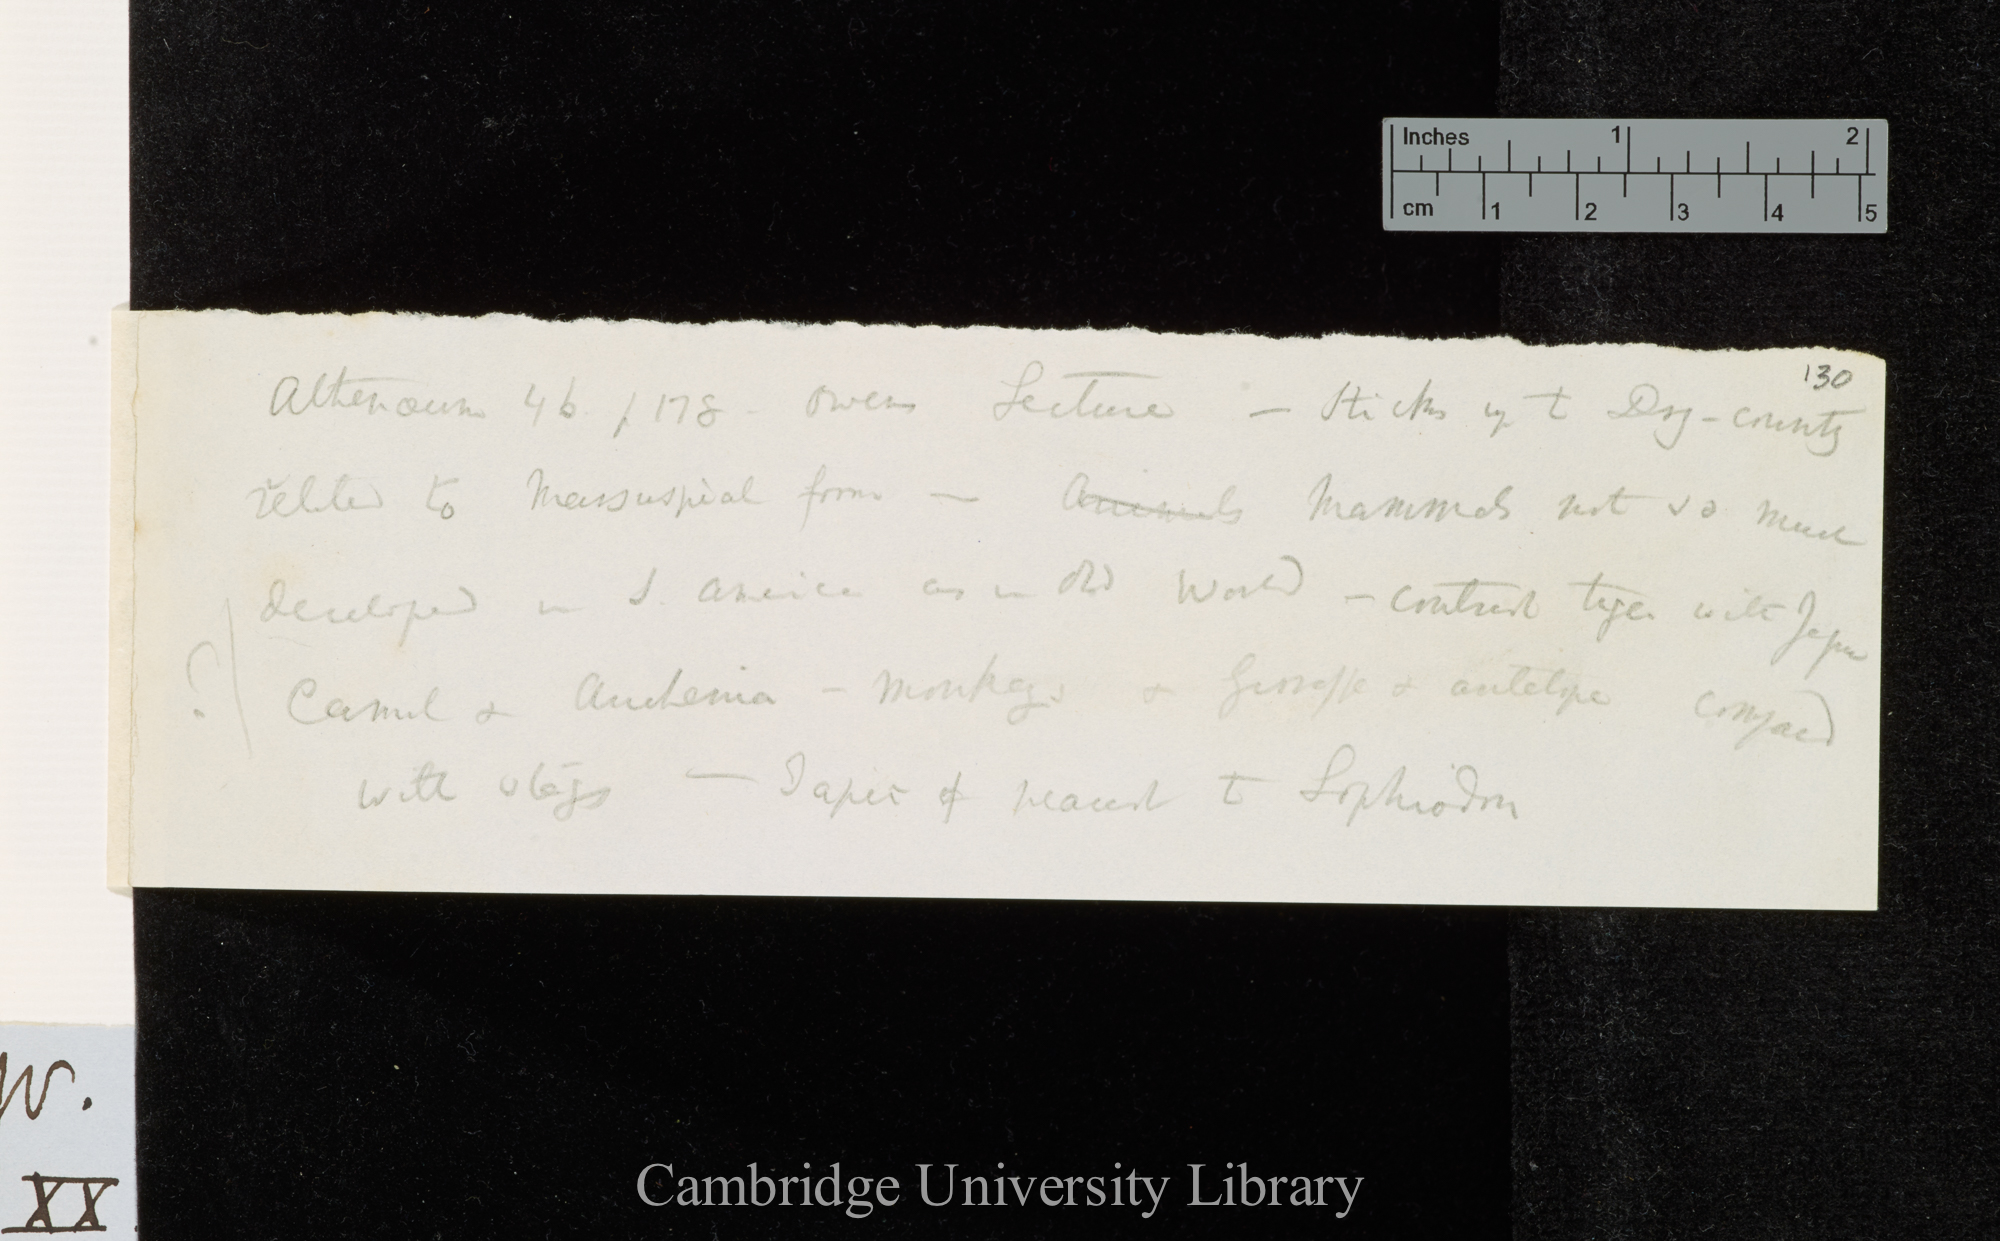 Inches 1 2
cm 1 2 3 4 5
130
Athenæum 46. p 178 - Owens Lecture — Sticks up t Dry-county
related to Marsupial form — Animals Mammals not so much
developed in S. America as in Old World — contrast tiger with Jaguar
? Camel & Auchenia — Monkeys & Giraffe & antelope compared
with stags — Tapir & nearest to Lophiodon
W.
XX
Cambridge University Library